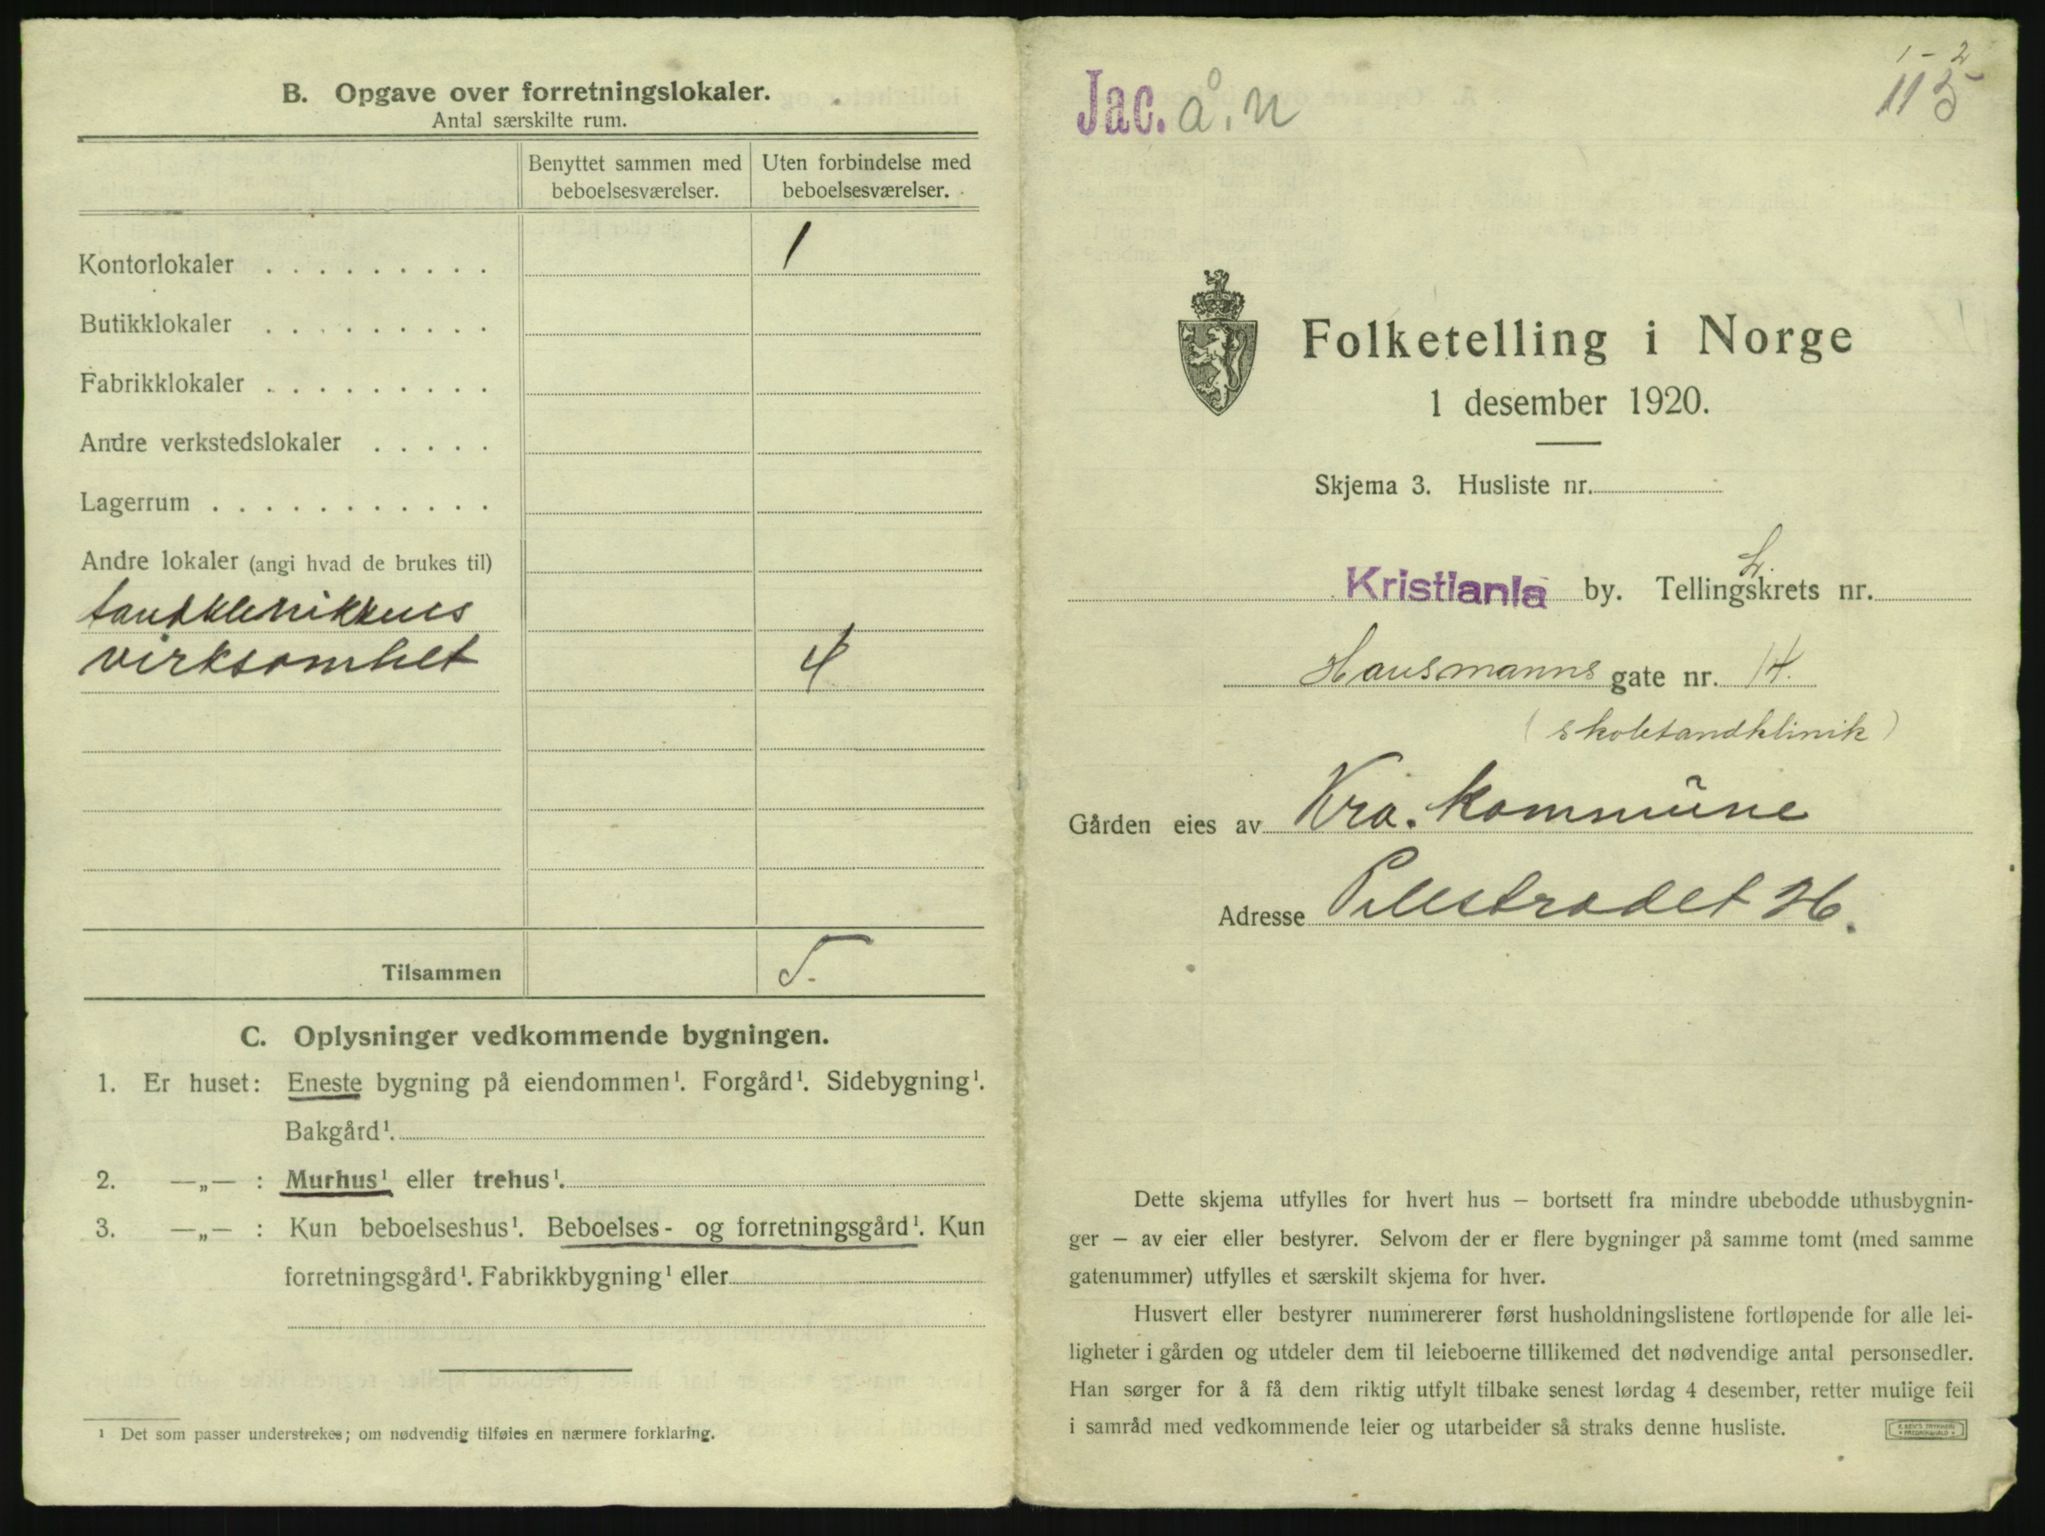 B. Opgave over forretningslokaler.
Antal særskilte rum.
Benyttet sammen med beboelsesværelser.
Uten forbindelse med beboelsesværelser.
Kontorlokaler . . . . . . . . . 1
Butikklokaler . . . . . . . . .
Fabrikklokaler . . . . . . . . .
Andre verkstedslokaler . . . . .
Lagerrum . . . . . . . . . . .
Andre lokaler (angi hvad de brukes til)
tandklinikkens
virksomhet 4
Tilsammen 5.
C. Oplysninger vedkommende bygningen.
1. Er huset: Eneste bygning på eiendommen¹. Forgård¹. Sidebygning¹.
Bakgård¹.
2. —„— : Murhus¹ eller trehus¹.
3. —„— : Kun beboelseshus¹. Beboelses- og forretningsgård¹. Kun
forretningsgård¹. Fabrikkbygning¹ eller
¹ Det som passer understrekes; om nødvendig tilføies en nærmere forklaring.
1-2
Jac. å. n 115
Folketelling i Norge
1 desember 1920.
Skjema 3. Husliste nr.
Kristiania by. Tellingskrets nr.
Hausmanns gate nr. 14.
(skoletandklinik)
Gården eies av Kra. kommune
Adresse Pilestrædet
Dette skjema utfylles for hvert hus — bortsett fra mindre ubebodde uthusbygnin-
ger — av eier eller bestyrer. Selvom der er flere bygninger på samme tomt (med samme
gatenummer) utfylles et særskilt skjema for hver.
Husvert eller bestyrer nummererer først husholdningslistene fortløpende for alle lei-
ligheter i gården og utdeler dem til leieboerne tillikemed det nødvendige antal personsedler.
Han sørger for å få dem riktig utfylt tilbake senest lørdag 4 desember, retter mulige feil
i samråd med vedkommende leier og utarbeider så straks denne husliste.